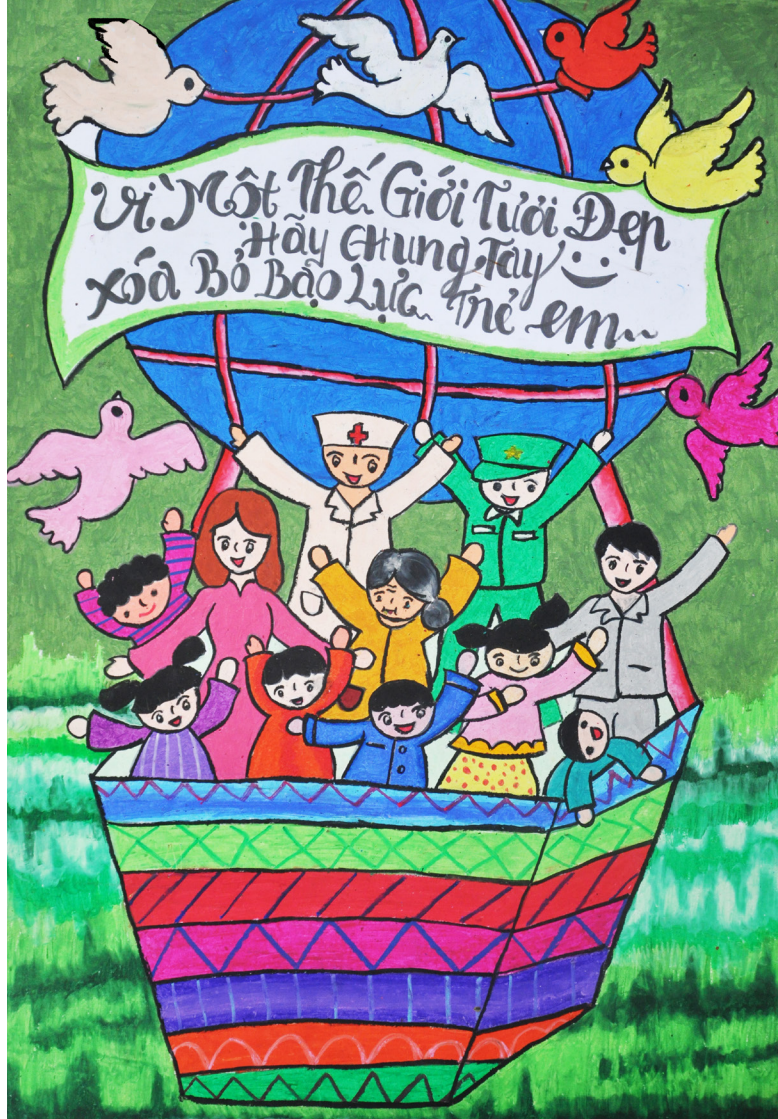 Vì Một Thế Giới Tươi Đẹp
Hãy CHung Tay
xóa Bỏ Bạo Lực.. Trẻ em...